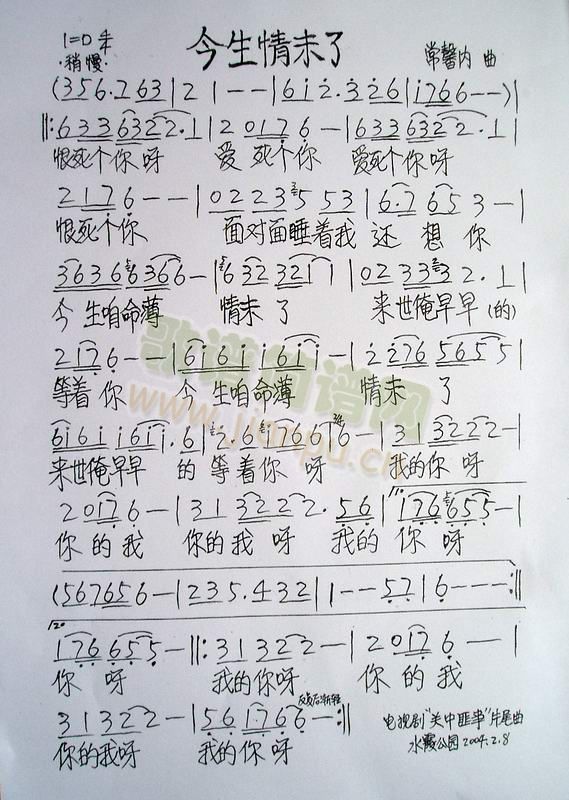 今生情未了
1=D 4/4
·稍慢·
常馨内 曲
(356.763|2 1--|612.326|1766--)|
||:6336322.1|20176-|6336322.1|
恨死个你呀 爱死个你 爱死个你呀
2176--|02235 53|6.7653-|
恨死个你 面对面睡着我 还想你
363666366-|6632321 1|0233332.1|
今生咱命薄 情未了 来世俺早早(的)
2176--|6161 1611-|2276 5655|
等着你 今生咱命薄 情未了
6161 1611.6|2.6 1766 6-|3132 22-|
来世俺早早 的等着你呀 我的你呀
20176-|3132 22.56|176655-|
你的我 你的我呀 我的你呀
(567656-|235.432|1--57|6---:||
176655-||:3132 2-|20176--|
你呀 我的你呀 你的我
3132 2-|56 1766-:||
反复后渐轻
你的我呀 我的你呀
电视剧"关中匪事"片尾曲
水霞公园2004.2.8
歌谱简谱网
www.jianpu.cn